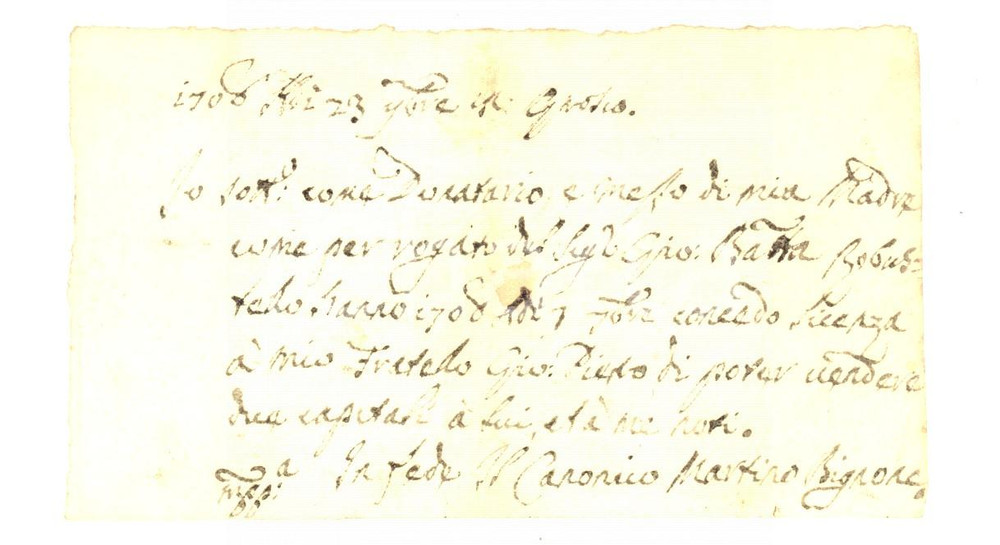 1706 Adi 23 9bre in Grosio.
Io sott.o come Donatario, e messo di mia Madre
come per rogato del Sig.r Gio: Batta Robus=
tello l'anno 1706 adi 7bre concedo licenza
à mio Fratello Gio: Pietro di poter vendere
due capitali à lui, et à me noti.
In fede Il Canonico Martino Bignone